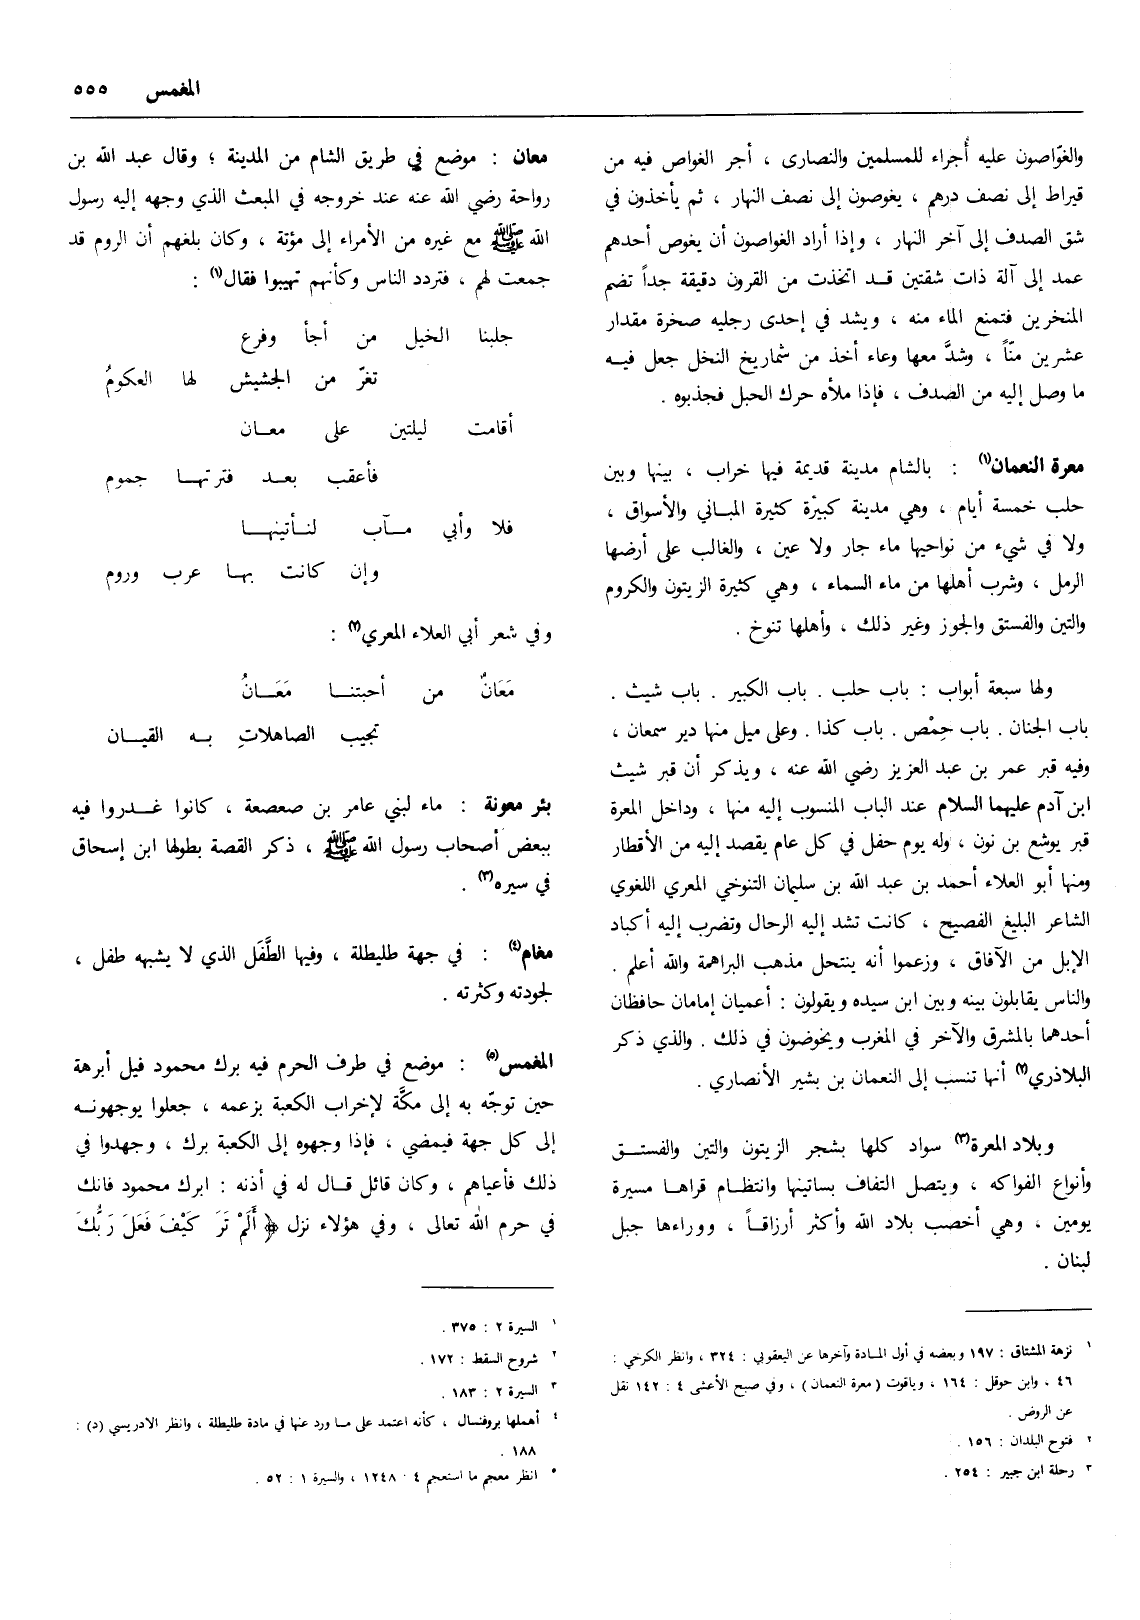 المغمس ٥٥٥
والغوّاصون عليه أُجراء للمسلمين والنصارى ، أجر الغواص فيه من
قيراط إلى نصف درهم ، يغوصون إلى نصف النهار ، ثم يأخذون في
شق الصدف إلى آخر النهار ، وإذا أراد الغواصون أن يغوص أحدهم
عمد إلى آلة ذات شقتين قد اتخذت من القرون دقيقة جداً تضم
المنخرين فتمنع الماء منه ، ويشد في إحدى رجليه صخرة مقدار
عشرين منّاً ، وشدَّ معها وعاء أخذ من شماريخ النخل جعل فيه
ما وصل إليه من الصدف ، فإذا ملأه حرك الحبل فجذبوه .
معرة النعمان(١) : بالشام مدينة قديمة فيها خراب ، بينها وبين
حلب خمسة أيام ، وهي مدينة كبيرة كثيرة المباني والأسواق ،
ولا في شيء من نواحيها ماء جار ولا عين ، والغالب على أرضها
الرمل ، وشرب أهلها من ماء السماء ، وهي كثيرة الزيتون والكروم
والتين والفستق والجوز وغير ذلك ، وأهلها تنوخ .
ولها سبعة أبواب : باب حلب . باب الكبير . باب شيث .
باب الجنان . باب حِمْص . باب كذا . وعلى ميل منها دير سمعان ،
وفيه قبر عمر بن عبد العزيز رضي الله عنه ، ويذكر أن قبر شيث
ابن آدم عليهما السلام عند الباب المنسوب إليه منها ، وداخل المعرة
قبر يوشع بن نون ، وله يوم حفل في كل عام يقصد إليه من الأقطار
ومنها أبو العلاء أحمد بن عبد الله بن سليمان التنوخي المعري اللغوي
الشاعر البليغ الفصيح ، كانت تشد إليه الرحال وتضرب إليه أكباد
الإبل من الآفاق ، وزعموا أنه ينتحل مذهب البراهمة والله أعلم .
والناس يقابلون بينه وبين ابن سيده ويقولون : أعميان إمامان حافظان
أحدهما بالمشرق والآخر في المغرب ويخوضون في ذلك . والذي ذكر
البلاذري(٢) أنها تنسب إلى النعمان بن بشير الأنصاري .
وبلاد المعرة(٣) سواد كلها بشجر الزيتون والتين والفستق
وأنواع الفواكه ، ويتصل التفاف بساتينها وانتظام قراها مسيرة
يومين ، وهي أخصب بلاد الله وأكثر أرزاقاً ، ووراءها جبل
لبنان .
١ نزهة المشتاق : ١٩٧ وبعضه في أول المادة وآخرها عن اليعقوبي : ٣٢٤ ، وانظر الكرخي :
٤٦ ، وابن حوقل : ١٦٤ ، وياقوت ( معرة النعمان ) ، وفي صبح الأعشى ٤ : ١٤٢ نقل
عن الروض .
٢ فتوح البلدان : ١٥٦ .
٣ رحلة ابن جبير : ٢٥٤ .
معان : موضع في طريق الشام من المدينة ؛ وقال عبد الله بن
رواحة رضي الله عنه عند خروجه في المبعث الذي وجهه إليه رسول
الله ﷺ مع غيره من الأمراء إلى مؤتة ، وكان بلغهم أن الروم قد
جمعت لهم ، فتردد الناس وكأنهم تهيبوا فقال(١) :
جلبنا الخيل من أجأ وفرع
تغرّ من الجشيش لها العكومُ
أقامت ليلتين على معان
فأعقب بعد فترتها جموم
فلا وأبي مآب لنأتينها
وإن كانت بها عرب وروم
وفي شعر أبي العلاء المعري(٢) :
مَعَانٌ من أحبتنا مَعَانُ
تجيب الصاهلاتِ به القيان
بئر معونة : ماء لبني عامر بن صعصعة ، كانوا غدروا فيه
ببعض أصحاب رسول الله ﷺ ، ذكر القصة بطولها ابن إسحاق
في سيره(٣) .
مغام(٤) : في جهة طليطلة ، وفيها الطَّفَل الذي لا يشبهه طفل ،
لجودته وكثرته .
المغمس(٥) : موضع في طرف الحرم فيه برك محمود فيل أبرهة
حين توجّه به إلى مكَّة لإخراب الكعبة بزعمه ، جعلوا يوجهونه
إلى كل جهة فيمضي ، فإذا وجهوه إلى الكعبة برك ، وجهدوا في
ذلك فأعياهم ، وكان قائل قال له في أذنه : ابرك محمود فانك
في حرم الله تعالى ، وفي هؤلاء نزل ﴿ أَلَمْ تَرَ كَيْفَ فَعَلَ رَبُّكَ
١ السيرة ٢ : ٣٧٥ .
٢ شروح السقط : ١٧٢ .
٣ السيرة ٢ : ١٨٣ .
٤ أهملها بروفنسال ، كأنه اعتمد على ما ورد عنها في مادة طليطلة ، وانظر الادريسي (د) :
١٨٨ .
٥ انظر معجم ما استعجم ٤ : ١٢٤٨ ، والسيرة ١ : ٥٢ .